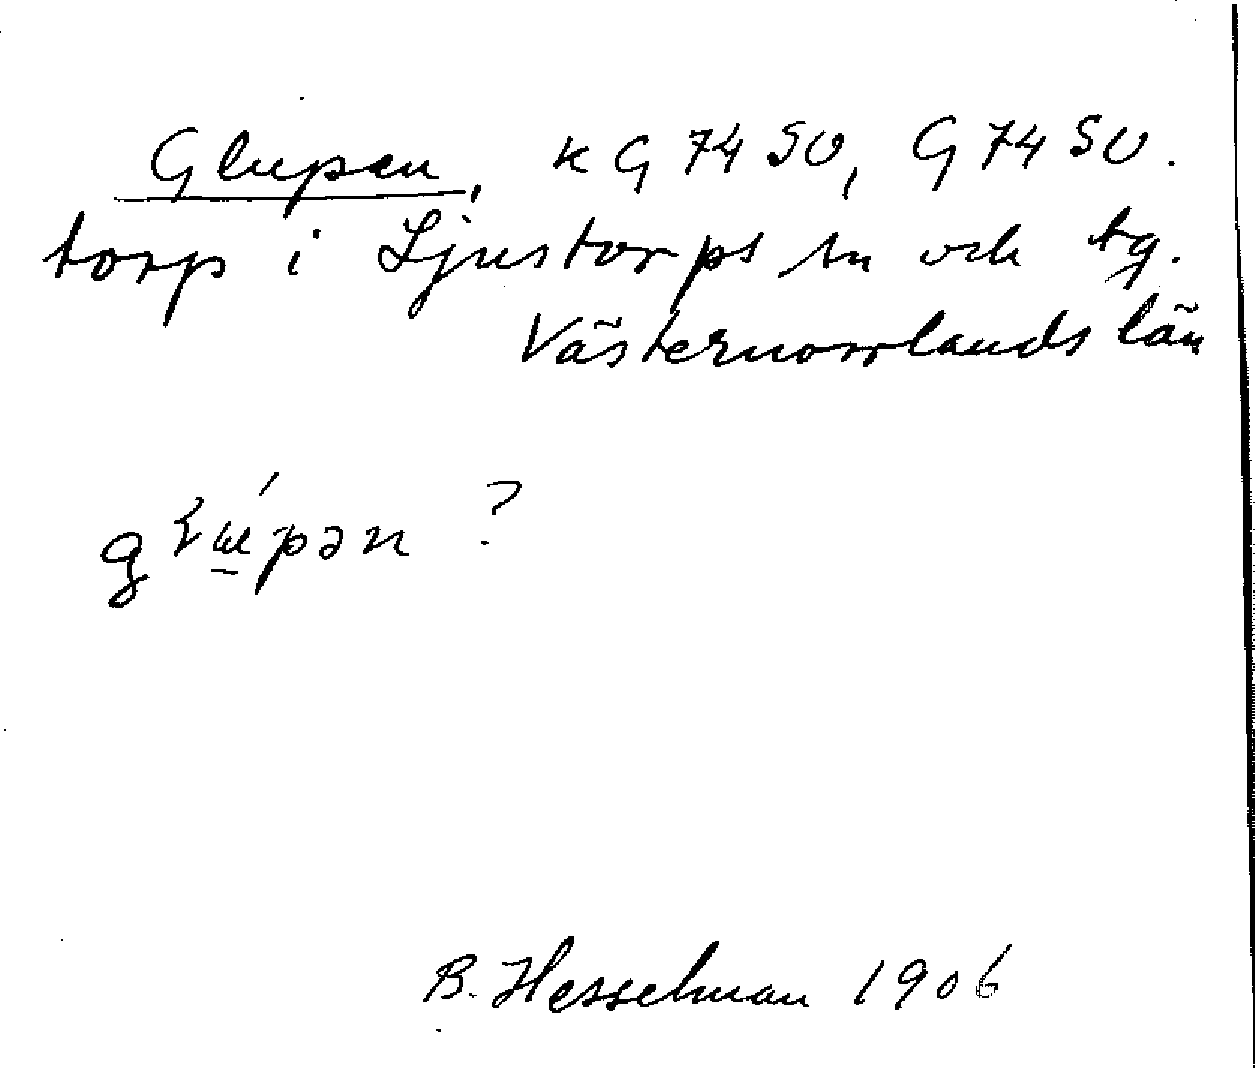 Glupen, K G 74 SV, G 74 SV.
torp i Ljustorps sn och tg.
Västernorrlands län
?
B. Hesselman 1906